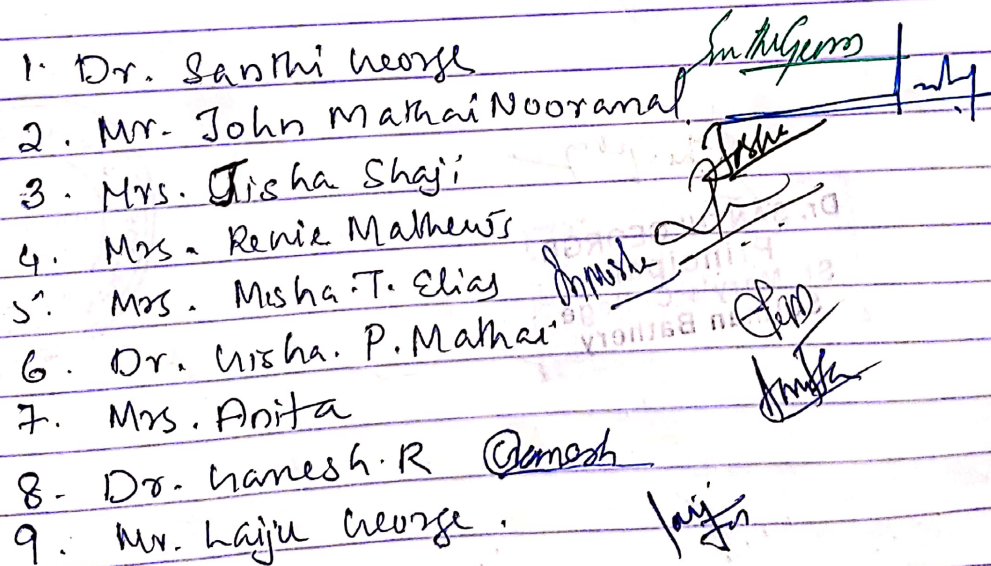 1. Dr. Santhi George
2. Mr. John Mathai Nooranal.
3. Mrs. Jisha Shaji
4. Mrs. Renie Mathews
5. Mrs. Misha.T. Elias
6. Dr. Gisha. P. Mathai
7. Mrs. Anita
8. Dr. Ganesh.R Ganesh
9. Mr. Laiju George.